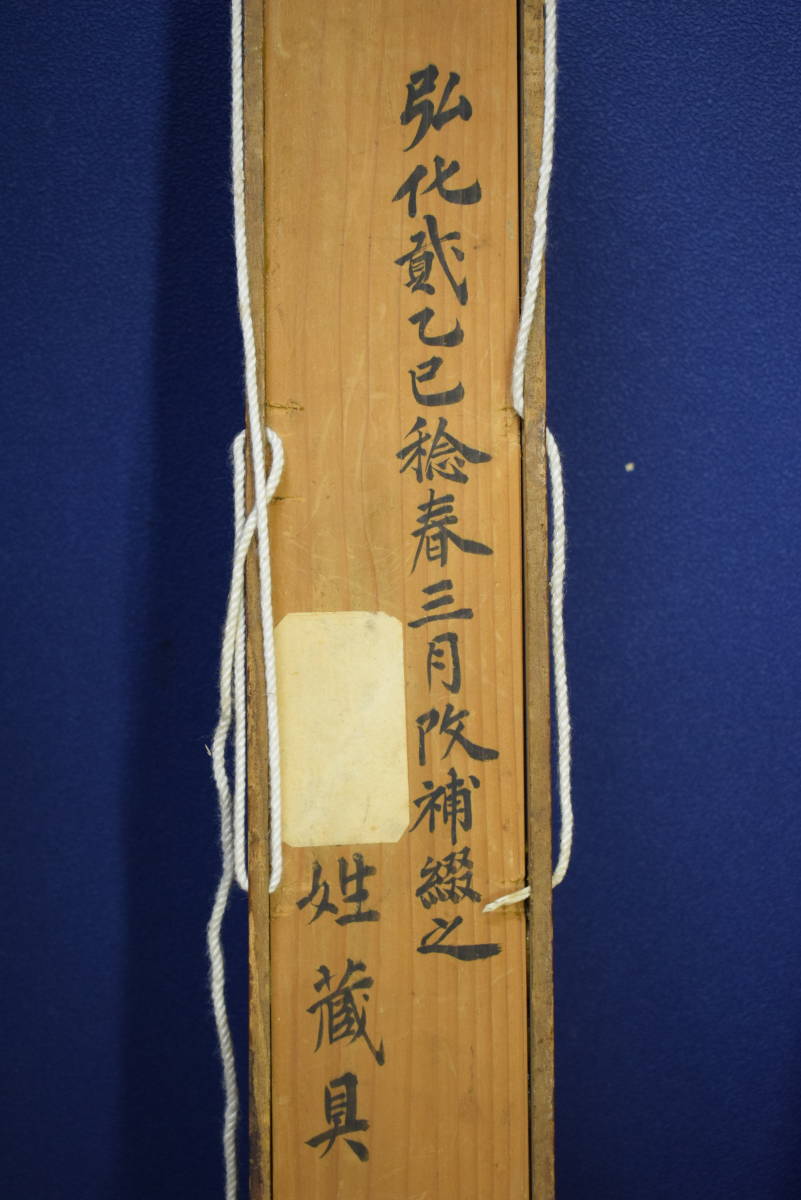 弘化貳乙巳稔春三月改補綴之
姓蔵具